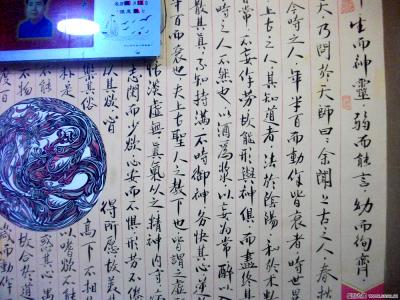 生而神靈弱而能言幼而徇齊
天乃問於天師曰余聞上古之人春秋
今時之人年半百而動作皆衰者時世異
上古之人其知道者法於陰陽和於术數
不妄作勞故能形與神俱而盡終其
時之人不然也以酒爲漿以妄爲常醉以
散其真不知持滿不時御神務快其心逆
半百而衰也夫上古聖人之教下也皆謂之虛
恬淡虛無真氣從之精神内守
志閑而少欲心安而不懼形勞而不倦
其欲皆得所願故美
樂其俗高下不相
朴是以嗜欲不能
不能其心愚
不故合於道
度百而動作